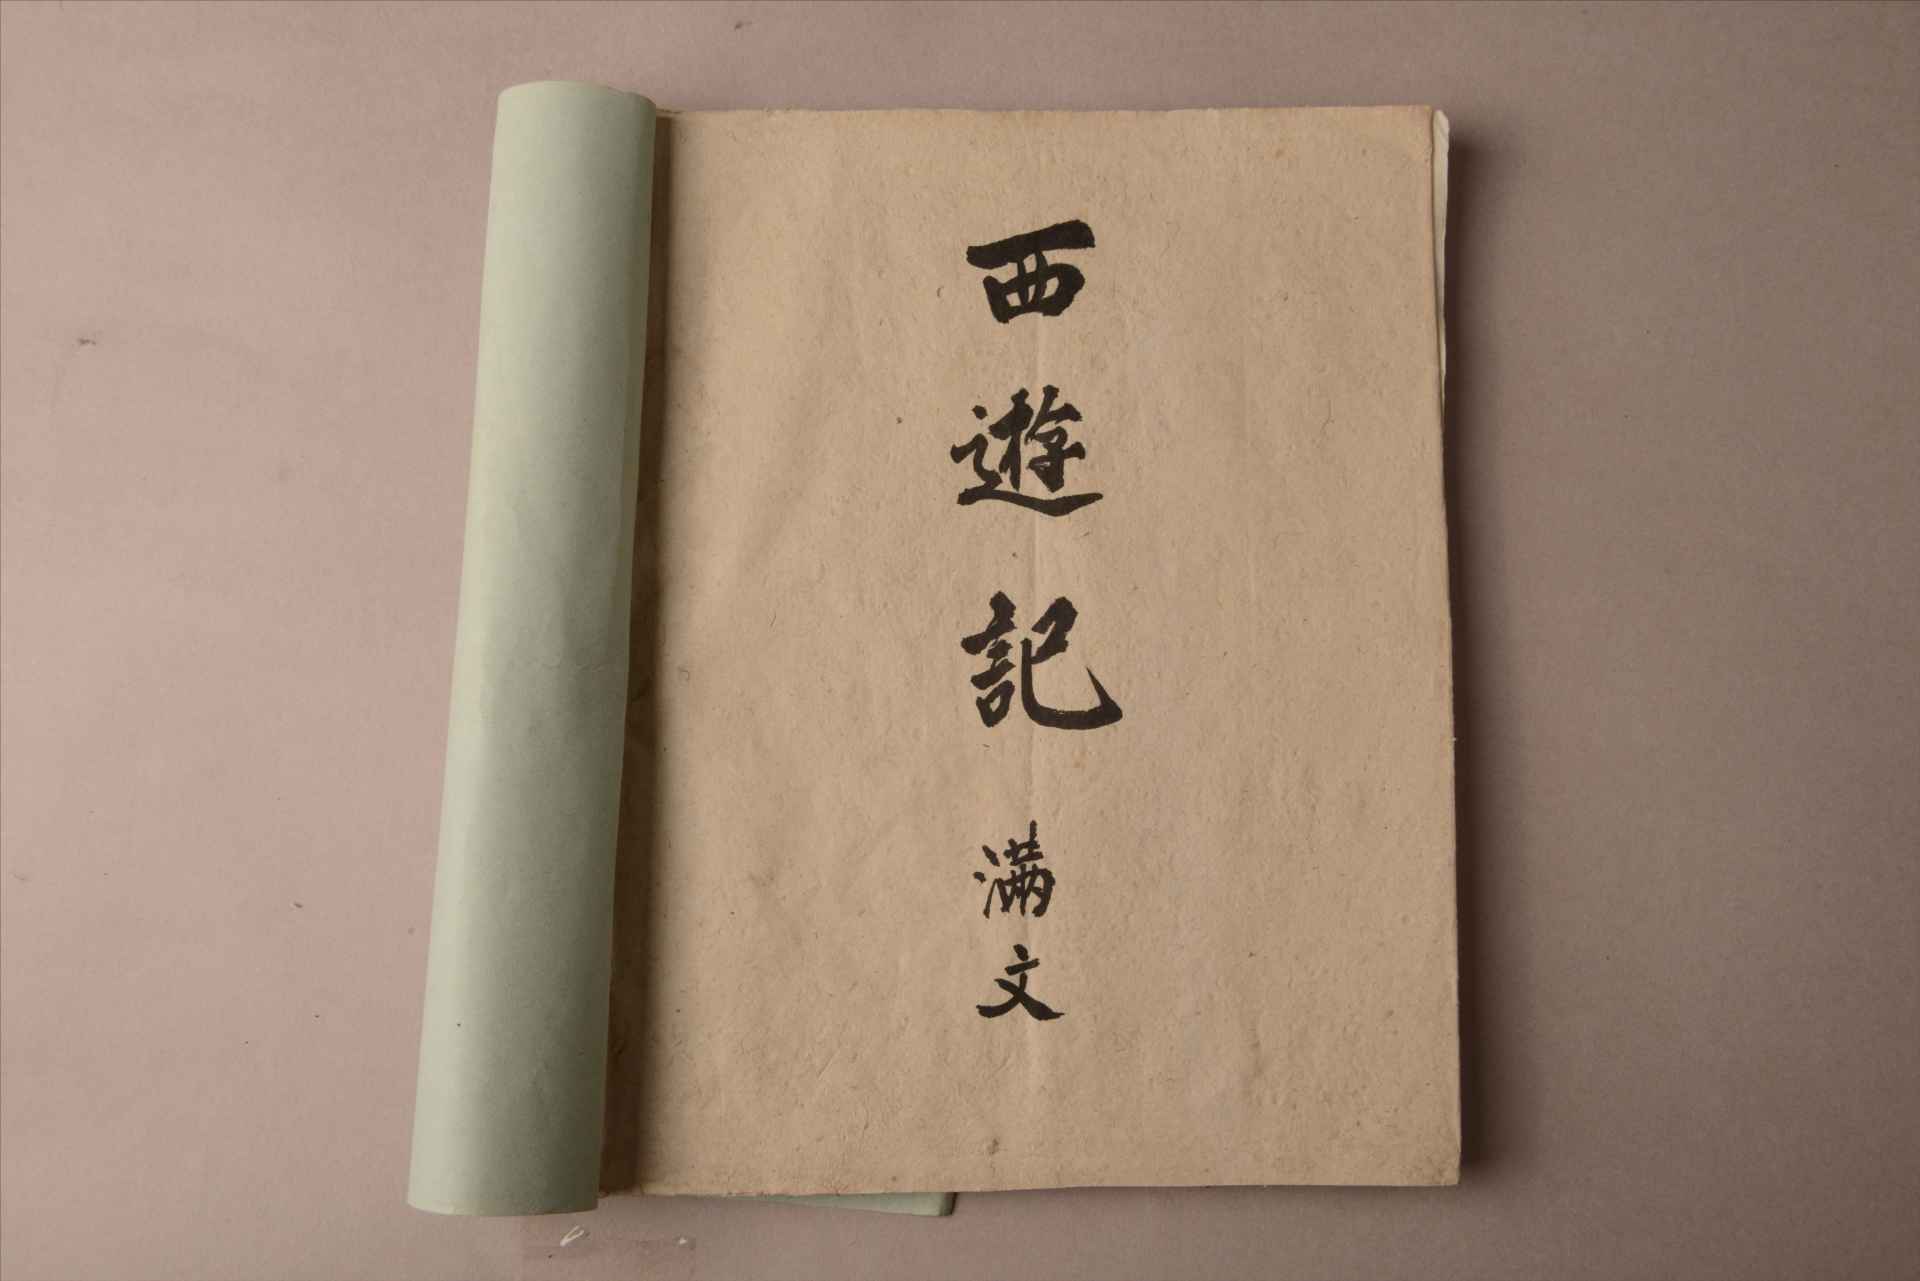 西遊記
満文